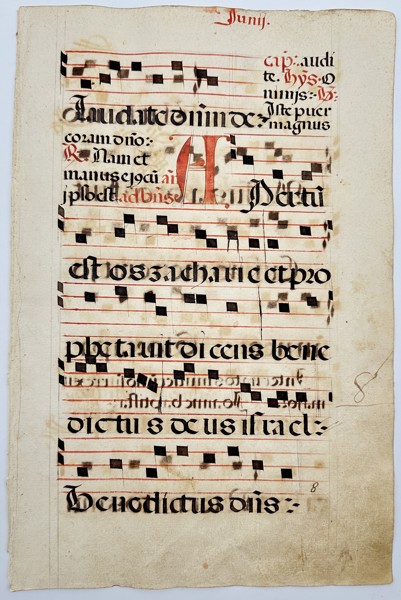 Junij.
cap̄. audi
te. hȳs. O
nimijs: V̄.
Iste puer
magnus
Laudate dn̄m de:
coram dn̄o:
R̄. Nam et
manus eius cū añ
ip̄o est. ad bn̄s.
APertū
est os zacharie et pro
phetauit dicens bene
dictus deus israel:
8
Benedictus dn̄s:
8